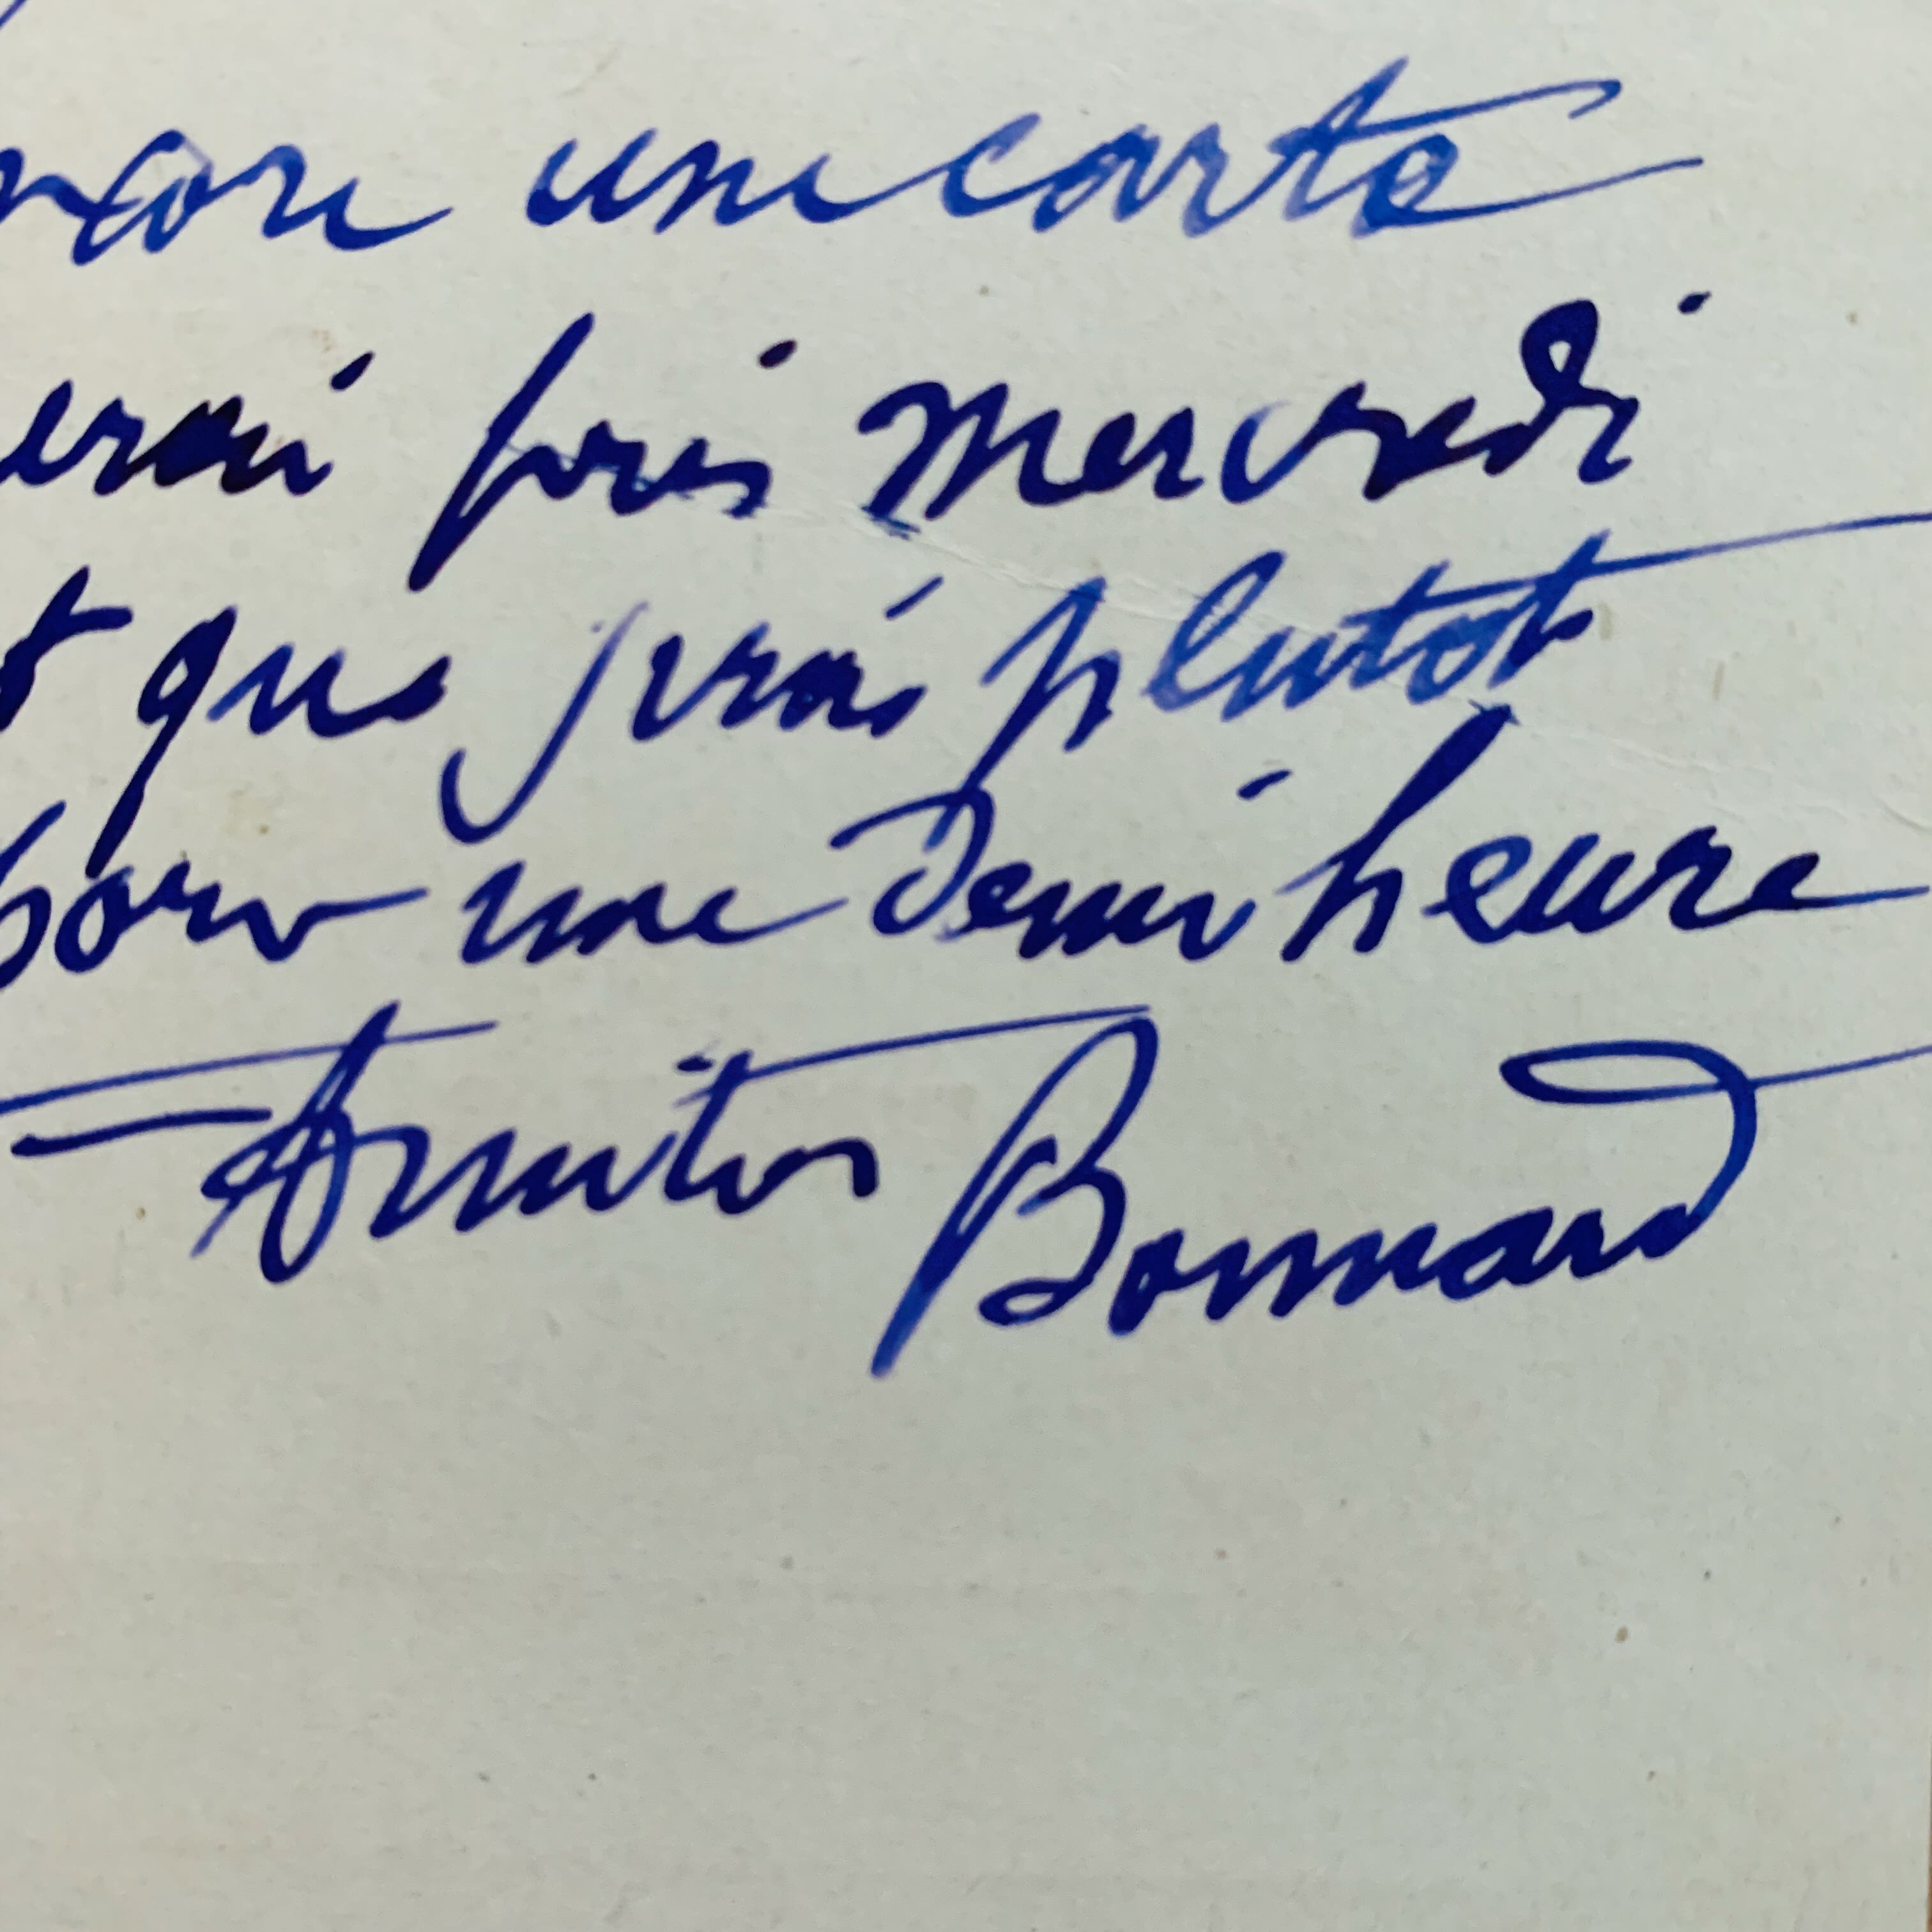 ncore une carte
erai pris Mercredi
t que jirai plutot
une demi heure
Amities Bonnard